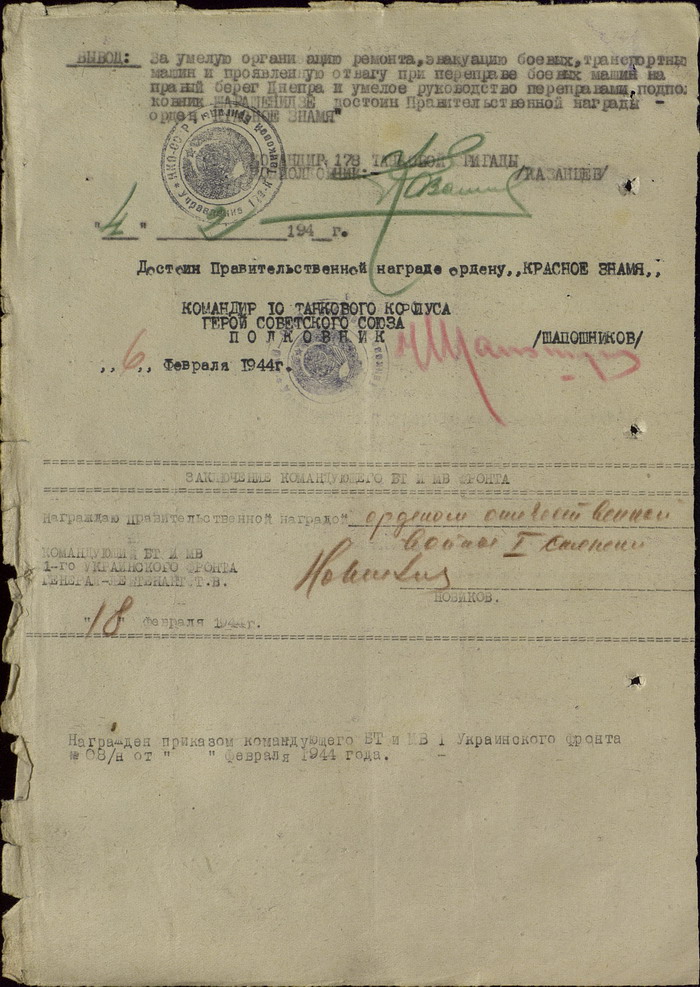 ВЫВОД: За умелую организацию ремонта, эвакуацию боевых, транспортных
машин и проявленную отвагу при переправе боевых машин на
правый берег Днепра и умелое руководство переправами, подпо-
ковник достоин Правительственной награды -
орден КРАСНОЕ ЗНАМЯ"
КОМАНДИР 178 ТАНКОВОЙ БРИГАДЫ
ПОДПОЛКОВНИК:- /КАЗАНЦЕВ/
"4" 2 194 г.
Достоин Правительственной награде ордену ,,КРАСНОЕ ЗНАМЯ,,
КОМАНДИР 10 ТАНКОВОГО КОРПУСА
ГЕРОЙ СОВЕТСКОГО СОЮЗА
ПОЛКОВНИК /ШАПОШНИКОВ/
,,6,, Февраля 1944г.
ЗАКЛЮЧЕНИЕ КОМАНДУЮЩЕГО БТ И МВ ФРОНТА
Награждаю правительственной наградой орденом отечественной
войны I степени
КОМАНДУЮЩИЙ БТ И МВ
1-го УКРАИНСКОГО ФРОНТА
ГЕНЕРАЛ-ЛЕЙТЕНАНТ.Т.В.
НОВИКОВ.
"18" Февраля 1944г.
Награжден приказом командующего БТ и МВ 1 Украинского фронта
№ 08/н от " " февраля 1944 года. -